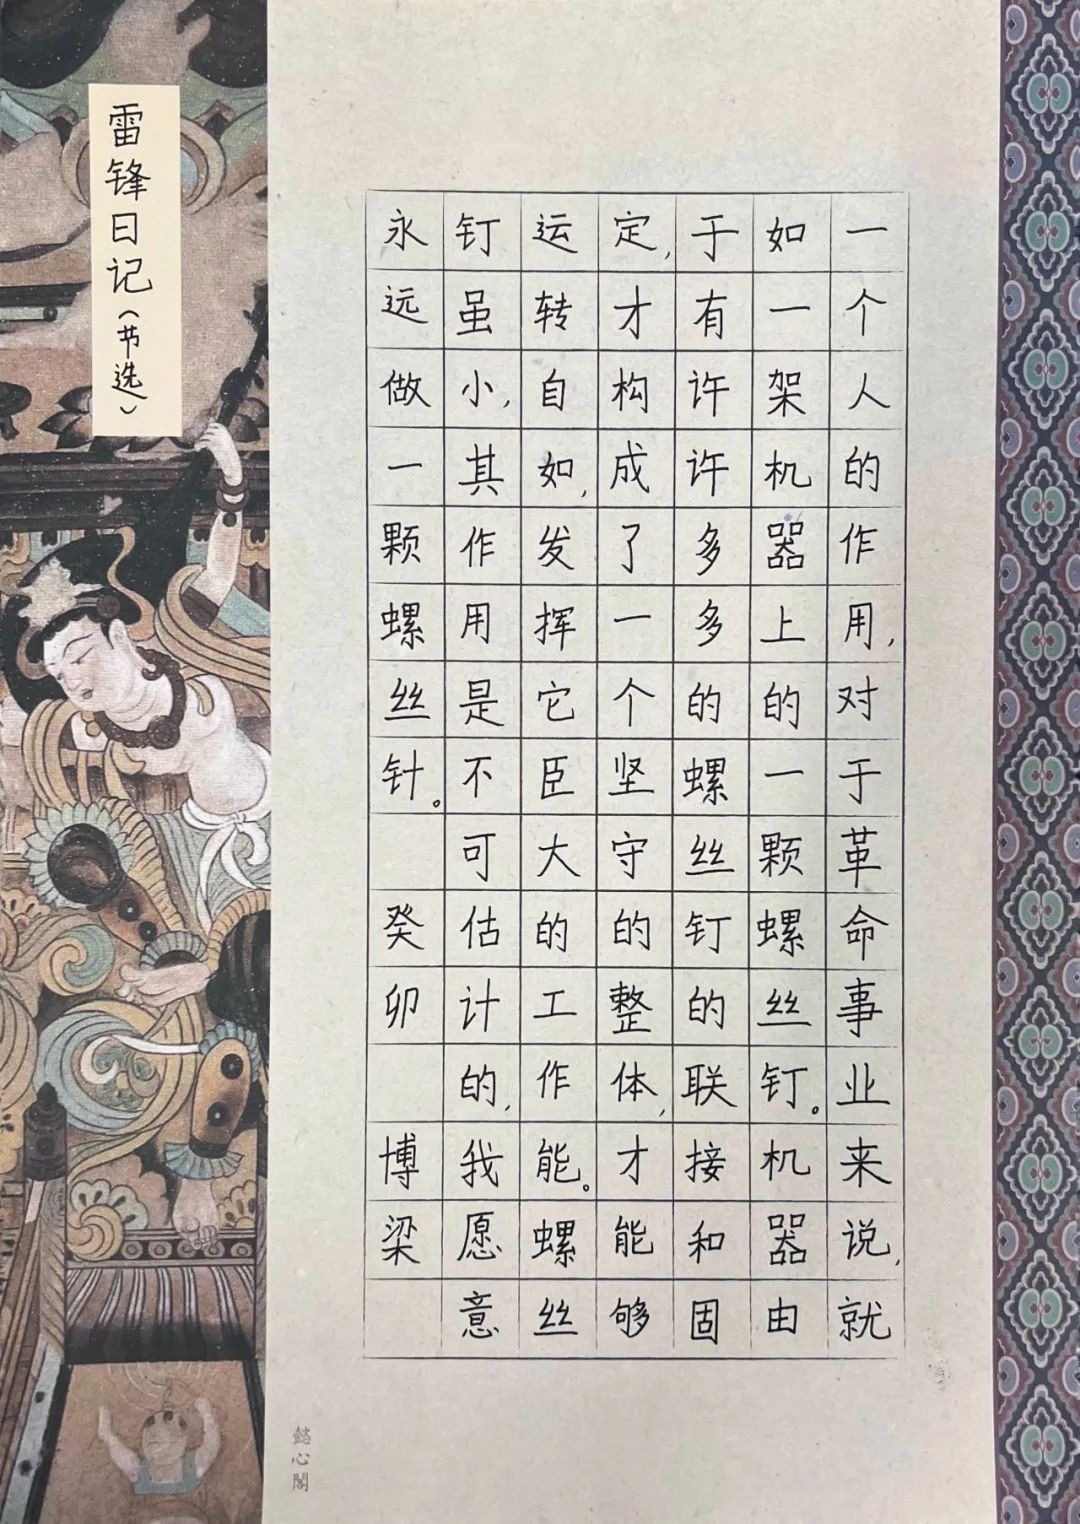 雷锋日记(节选)
一个人的作用,对于革命事业来说,就
如一架机器上的一颗螺丝钉。机器由
于有许许多多的螺丝钉的联接和固
定,才构成了一个坚守的整体,才能够
运转自如,发挥它臣大的工作能。螺丝
钉虽小,其作用是不可估计的,我愿意
永远做一颗螺丝针。 癸卯 博梁
懿心閣